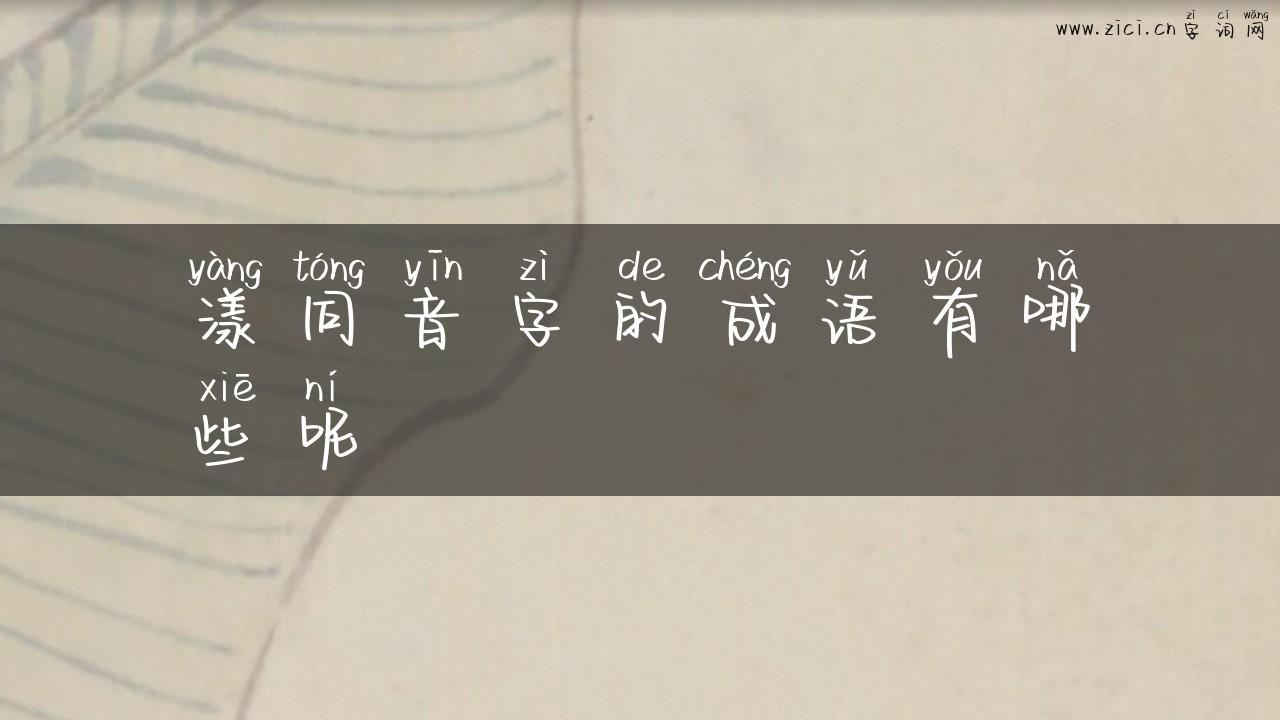 zì cí wǎng
www.zici.cn 字词网
yàng tóng yīn zì de chéng yǔ yǒu nǎ
漾同音字的成语有哪
xiē ní
些呢